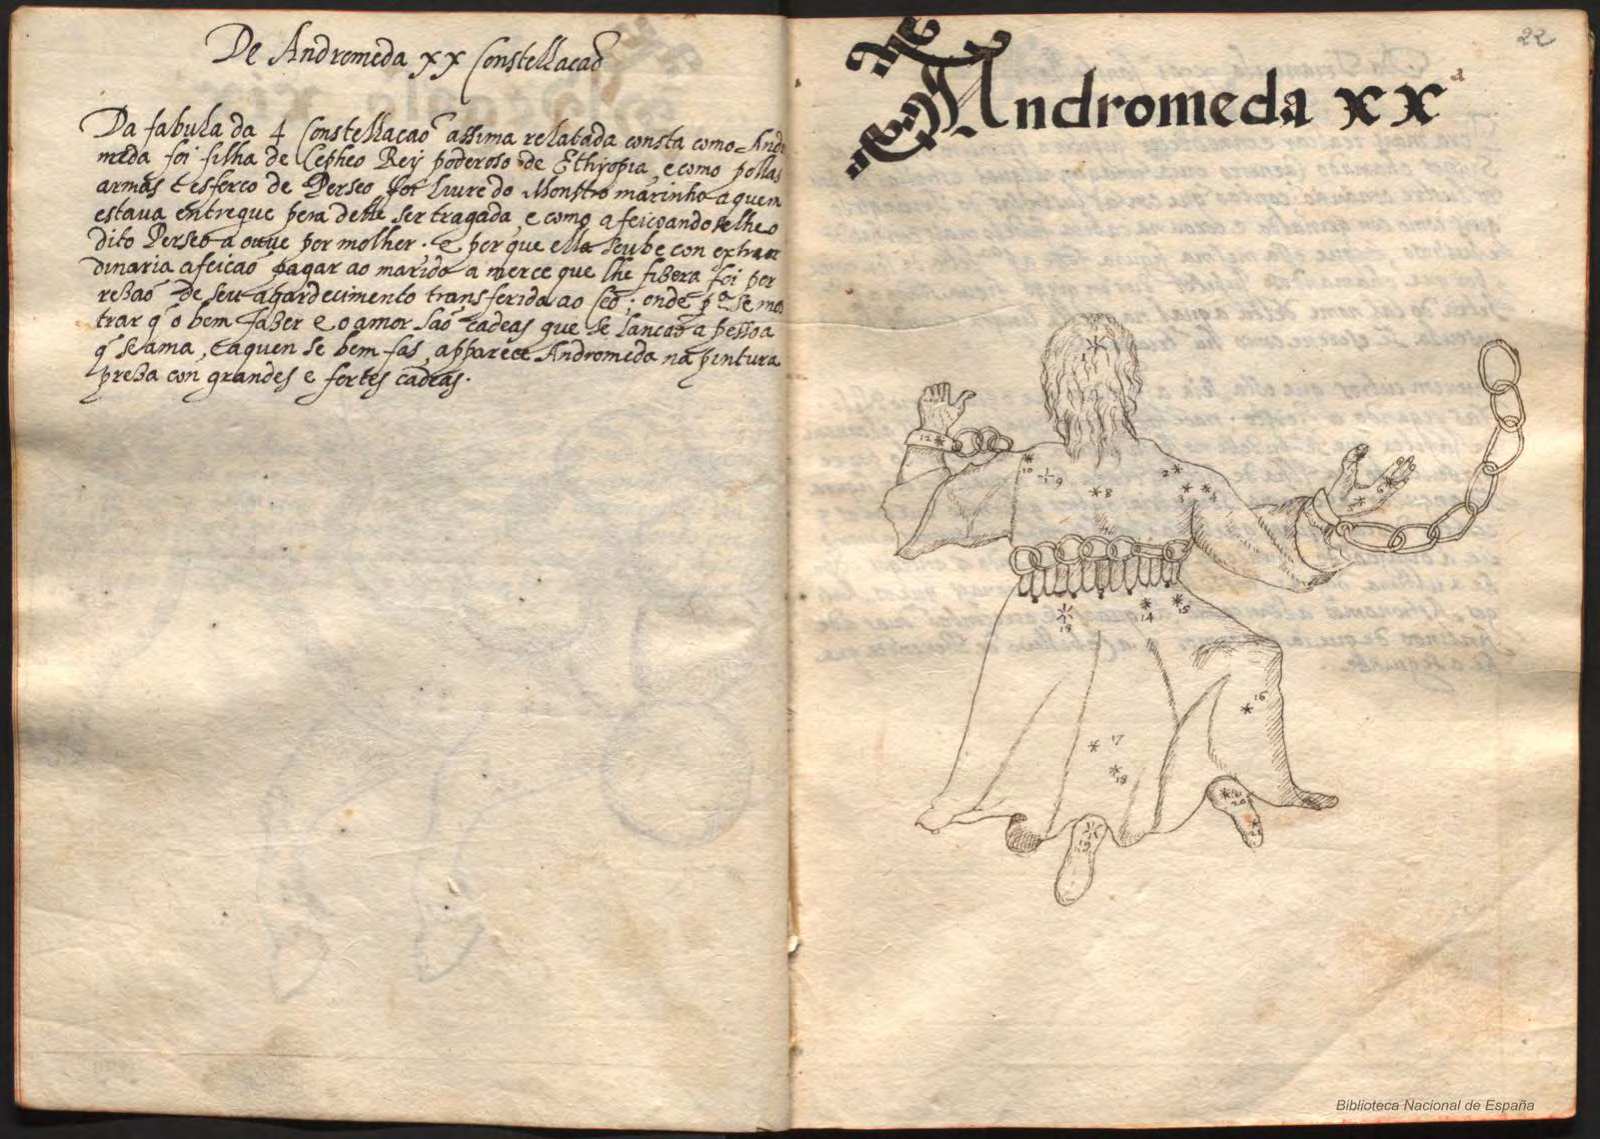 De Andromeda xx Constellacaõ
Da fabula da 4 Constellacaõ assima relatada consta como Andro
meda foi filha de Cepheo Rey poderoso de Ethyopia, e como pollas
armas e esforco de Perseo foi livre do Monstro marinho a quem
estava entregue pera delle ser tragada, e como afeicoandoselhe o
dito Perseo a ouve por molher. e porque ella soube con extraor
dinaria afeicaõ pagar ao marido a merce que lhe fizera foi por
rezaõ de seu agardecimento transferida ao Ceo; onde pª se mos
trar q̃ o bem fazer e o amor saõ cadeas que se lancaõ a pessoa
q̃ se ama, e a quen se bem fas, apparece Andromeda na pintura
preza con grandes e fortes cadeas.
22
Andromeda xx
12
10
9
8
2
3
4
5
6
13
14
15
16
17
18
19
20
21
Biblioteca Nacional de España